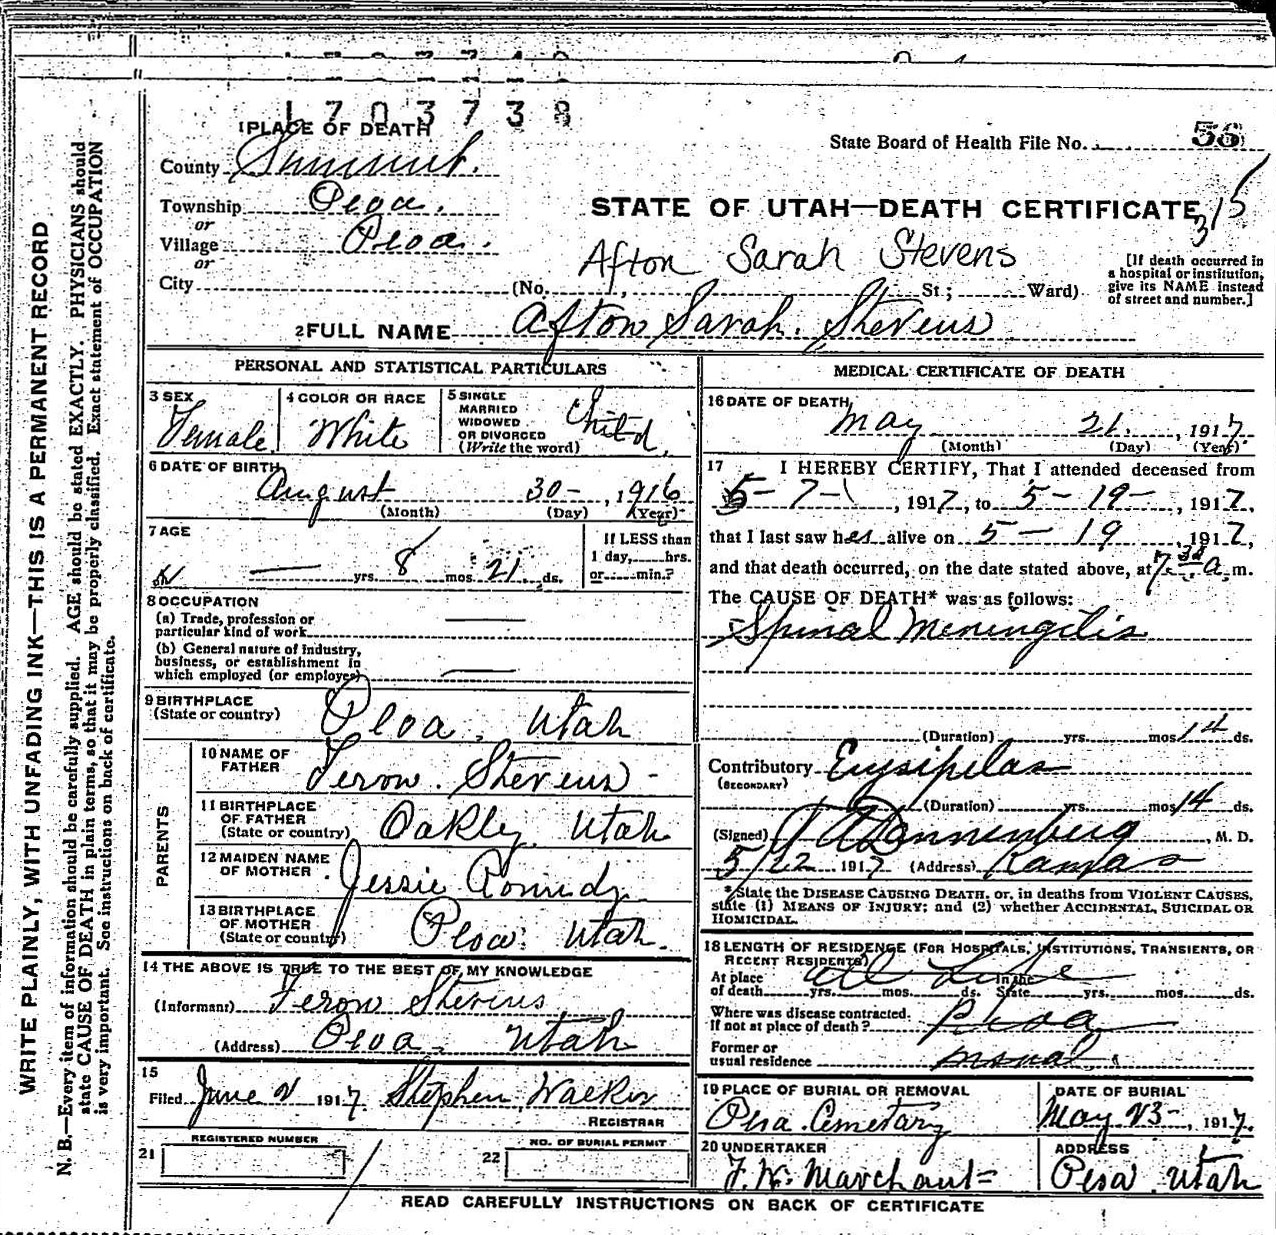 1703738
1 PLACE OF DEATH
State Board of Health File No. 56
County Summit.
315
Township Peoa.
or
STATE OF UTAH—DEATH CERTIFICATE
Village Peoa.
or
Afton Sarah Stevens
City (No. St.; Ward)
[If death occurred in
a hospital or institution,
give its NAME instead
of street and number.]
2 FULL NAME Afton Sarah. Stevens
PERSONAL AND STATISTICAL PARTICULARS
3 SEX
Female.
4 COLOR OR RACE
White
5 SINGLE
MARRIED
WIDOWED
OR DIVORCED
(Write the word)
Child.
6 DATE OF BIRTH
August 30- , 1916
(Month) (Day) (Year)
7 AGE
— yrs. 8 mos. 21 ds.
If LESS than
1 day, hrs.
or min.?
8 OCCUPATION
(a) Trade, profession or
particular kind of work —
(b) General nature of industry,
business, or establishment in
which employed (or employer) —
9 BIRTHPLACE
(State or country) Peoa, Utah
PARENTS
10 NAME OF
FATHER Feron. Stevens -
11 BIRTHPLACE
OF FATHER
(State or country) Oakley, Utah
12 MAIDEN NAME
OF MOTHER Jessie
13 BIRTHPLACE
OF MOTHER
(State or country) Peoa. Utah.
14 THE ABOVE IS TRUE TO THE BEST OF MY KNOWLEDGE
(Informant) Feron Stevens
(Address) Peoa, Utah
15
Filed June 2 1917. Stephen Walker
REGISTRAR
REGISTERED NUMBER
21
NO. OF BURIAL PERMIT
22
MEDICAL CERTIFICATE OF DEATH
16 DATE OF DEATH
May 21. , 1917
(Month) (Day) (Year)
17 I HEREBY CERTIFY, That I attended deceased from
5-7- , 1917, to 5-19- , 1917,
that I last saw her alive on 5-19 , 1917,
and that death occurred, on the date stated above, at 7.30 a.m.
The CAUSE OF DEATH* was as follows:
Spinal Meningitis
(Duration) yrs. mos. 14 ds.
Contributory Erysipelas
(SECONDARY)
(Duration) yrs. mos. 14 ds.
(Signed) M. D.
5/22 1917 (Address) Kamas
*State the DISEASE CAUSING DEATH, or, in deaths from VIOLENT CAUSES,
state (1) MEANS OF INJURY; and (2) whether ACCIDENTAL, SUICIDAL OR
HOMICIDAL.
18 LENGTH OF RESIDENCE (FOR HOSPITALS, INSTITUTIONS, TRANSIENTS, OR
RECENT RESIDENTS)
all Life
At place In the
of death yrs. mos. ds. State yrs. mos. ds.
Where was disease contracted.
If not at place of death? Peoa
Former or
usual residence usual.
19 PLACE OF BURIAL OR REMOVAL
Peoa Cemetary
DATE OF BURIAL
May 23- , 1917.
20 UNDERTAKER
F. W. Marchant
ADDRESS
Peoa, Utah
READ CAREFULLY INSTRUCTIONS ON BACK OF CERTIFICATE
WRITE PLAINLY, WITH UNFADING INK—THIS IS A PERMANENT RECORD
N. B.—Every item of information should be carefully supplied. AGE should be stated EXACTLY. PHYSICIANS should
state CAUSE OF DEATH in plain terms, so that it may be properly classified. Exact statement of OCCUPATION
is very important. See instructions on back of certificate.